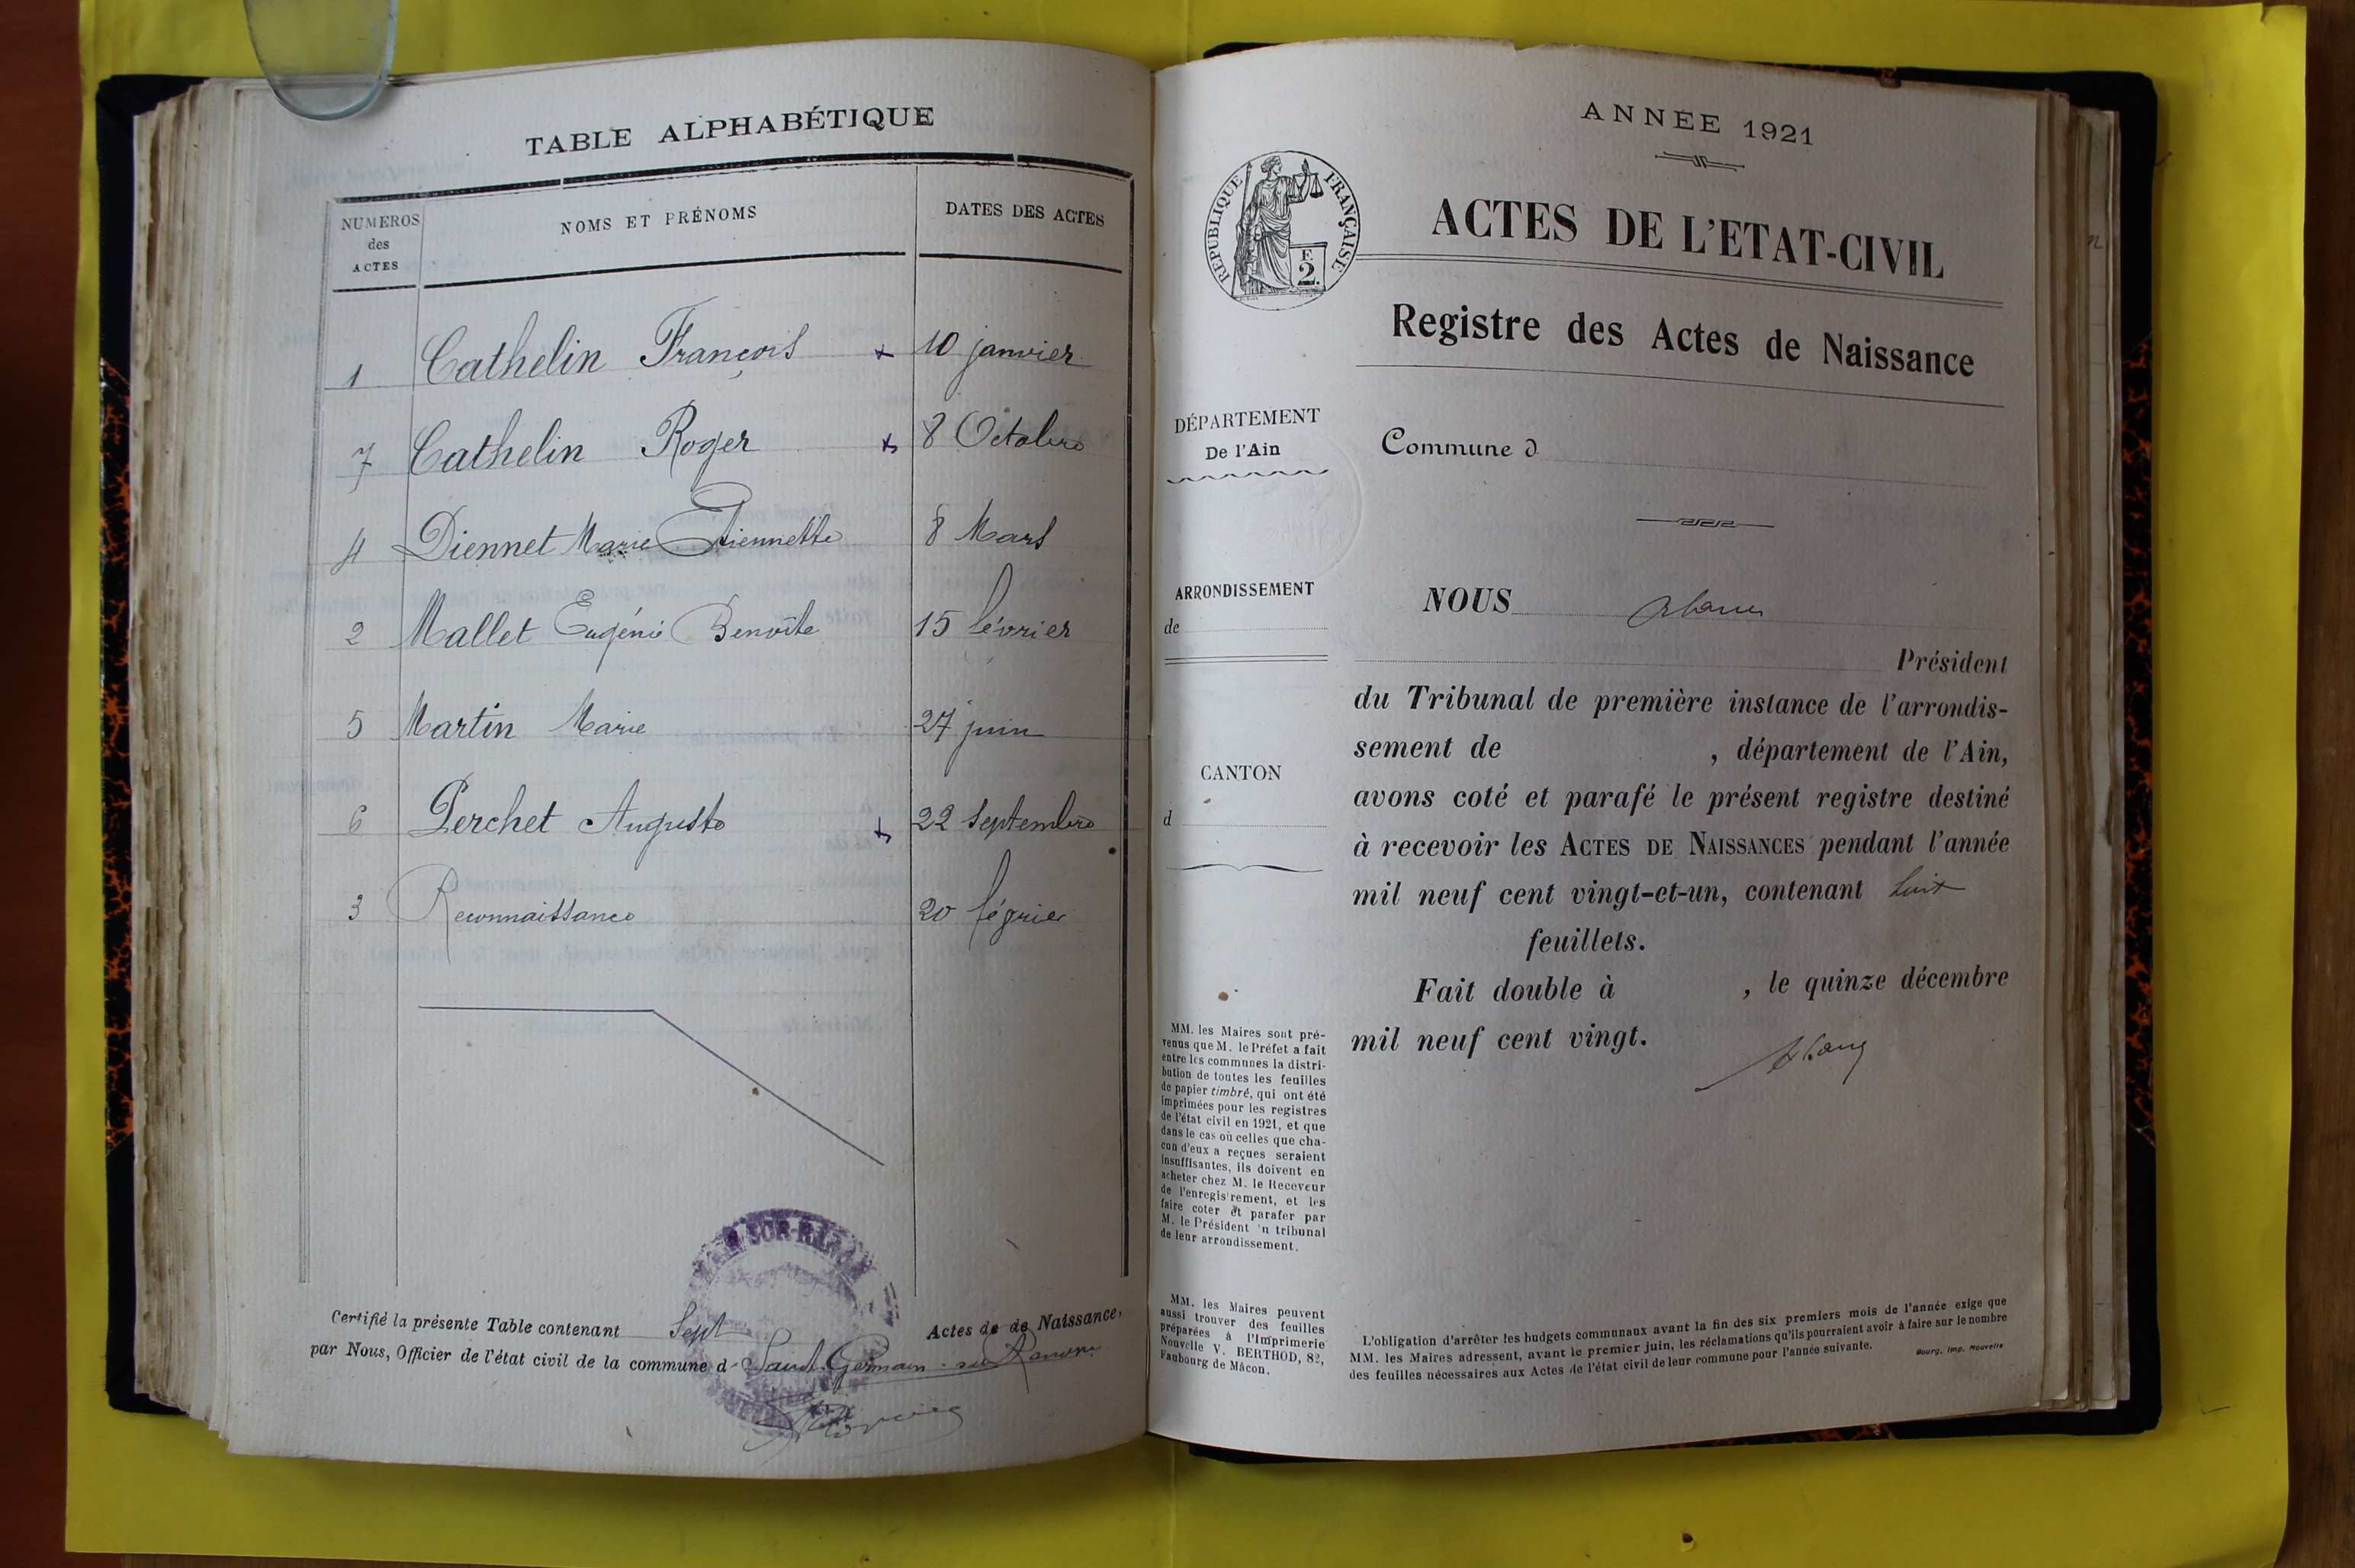 TABLE ALPHABÉTIQUE
NUMEROS des ACTES
NOMS ET PRÉNOMS
DATES DES ACTES
1 Cathelin François + 10 janvier
7 Cathelin Roger + 8 Octobre
4 Diennet Marie Etiennette 8 Mars
2 Mallet Eugénie Benoîte 15 février
5 Martin Marie 27 juin
6 Perchet Auguste + 22 septembre
3 Reconnaissance 20 février
Certifié la présente Table contenant Sept Actes de de Naissance,
par Nous, Officier de l'état civil de la commune d Saint-Germain-sur-Renon
ANNÉE 1921
RÉPUBLIQUE FRANÇAISE
F.
2.
ACTES DE L'ETAT-CIVIL
Registre des Actes de Naissance
DÉPARTEMENT
De l'Ain
Commune d
ARRONDISSEMENT
de
CANTON
d
NOUS
Président
du Tribunal de première instance de l'arrondis-
sement de , département de l'Ain,
avons coté et parafé le présent registre destiné
à recevoir les ACTES DE NAISSANCES pendant l'année
mil neuf cent vingt-et-un, contenant huit
feuillets.
Fait double à , le quinze décembre
mil neuf cent vingt.
MM. les Maires sont pré-
venus que M. le Préfet a fait
entre les communes la distri-
bution de toutes les feuilles
de papier timbré, qui ont été
imprimées pour les registres
de l'état civil en 1921, et que
dans le cas où celles que cha-
cun d'eux a reçues seraient
insuffisantes, ils doivent en
acheter chez M. le Receveur
de l'enregis'rement, et les
faire coter et parafer par
M. le Président 'n tribunal
de leur arrondissement.
MM. les Maires peuvent
aussi trouver des feuilles
préparées à l'Imprimerie
Nouvelle V. BERTHOD, 82,
Faubourg de Mâcon.
L'obligation d'arrêter les budgets communaux avant la fin des six premiers mois de l'année exige que
MM. les Maires adressent, avant le premier juin, les réclamations qu'ils pourraient avoir à faire sur le nombre
des feuilles nécessaires aux Actes de l'état civil de leur commune pour l'année suivante.
Bourg, Imp. Nouvelle